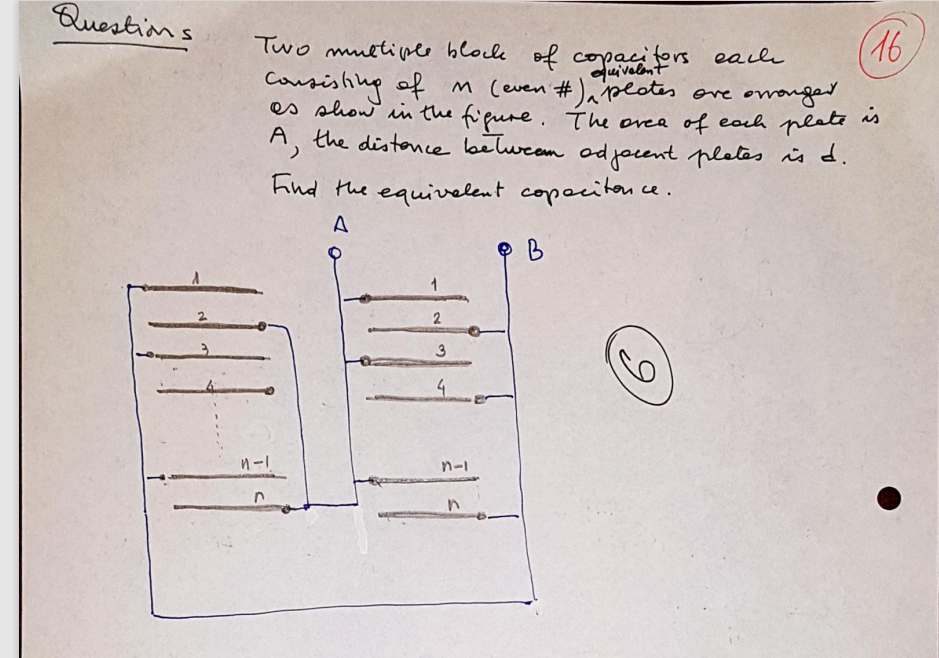 Questions
16
Two multiple block of capacitors each
equivalent
consisting of n (even #) ^ plates are arranged
as show in the figure. The area of each plate is
A, the distance between adjacent plates is d.
Find the equivalent capacitance.
A
B
1
1
2
2
3
3
4
4
6
n-1
n-1
n
n